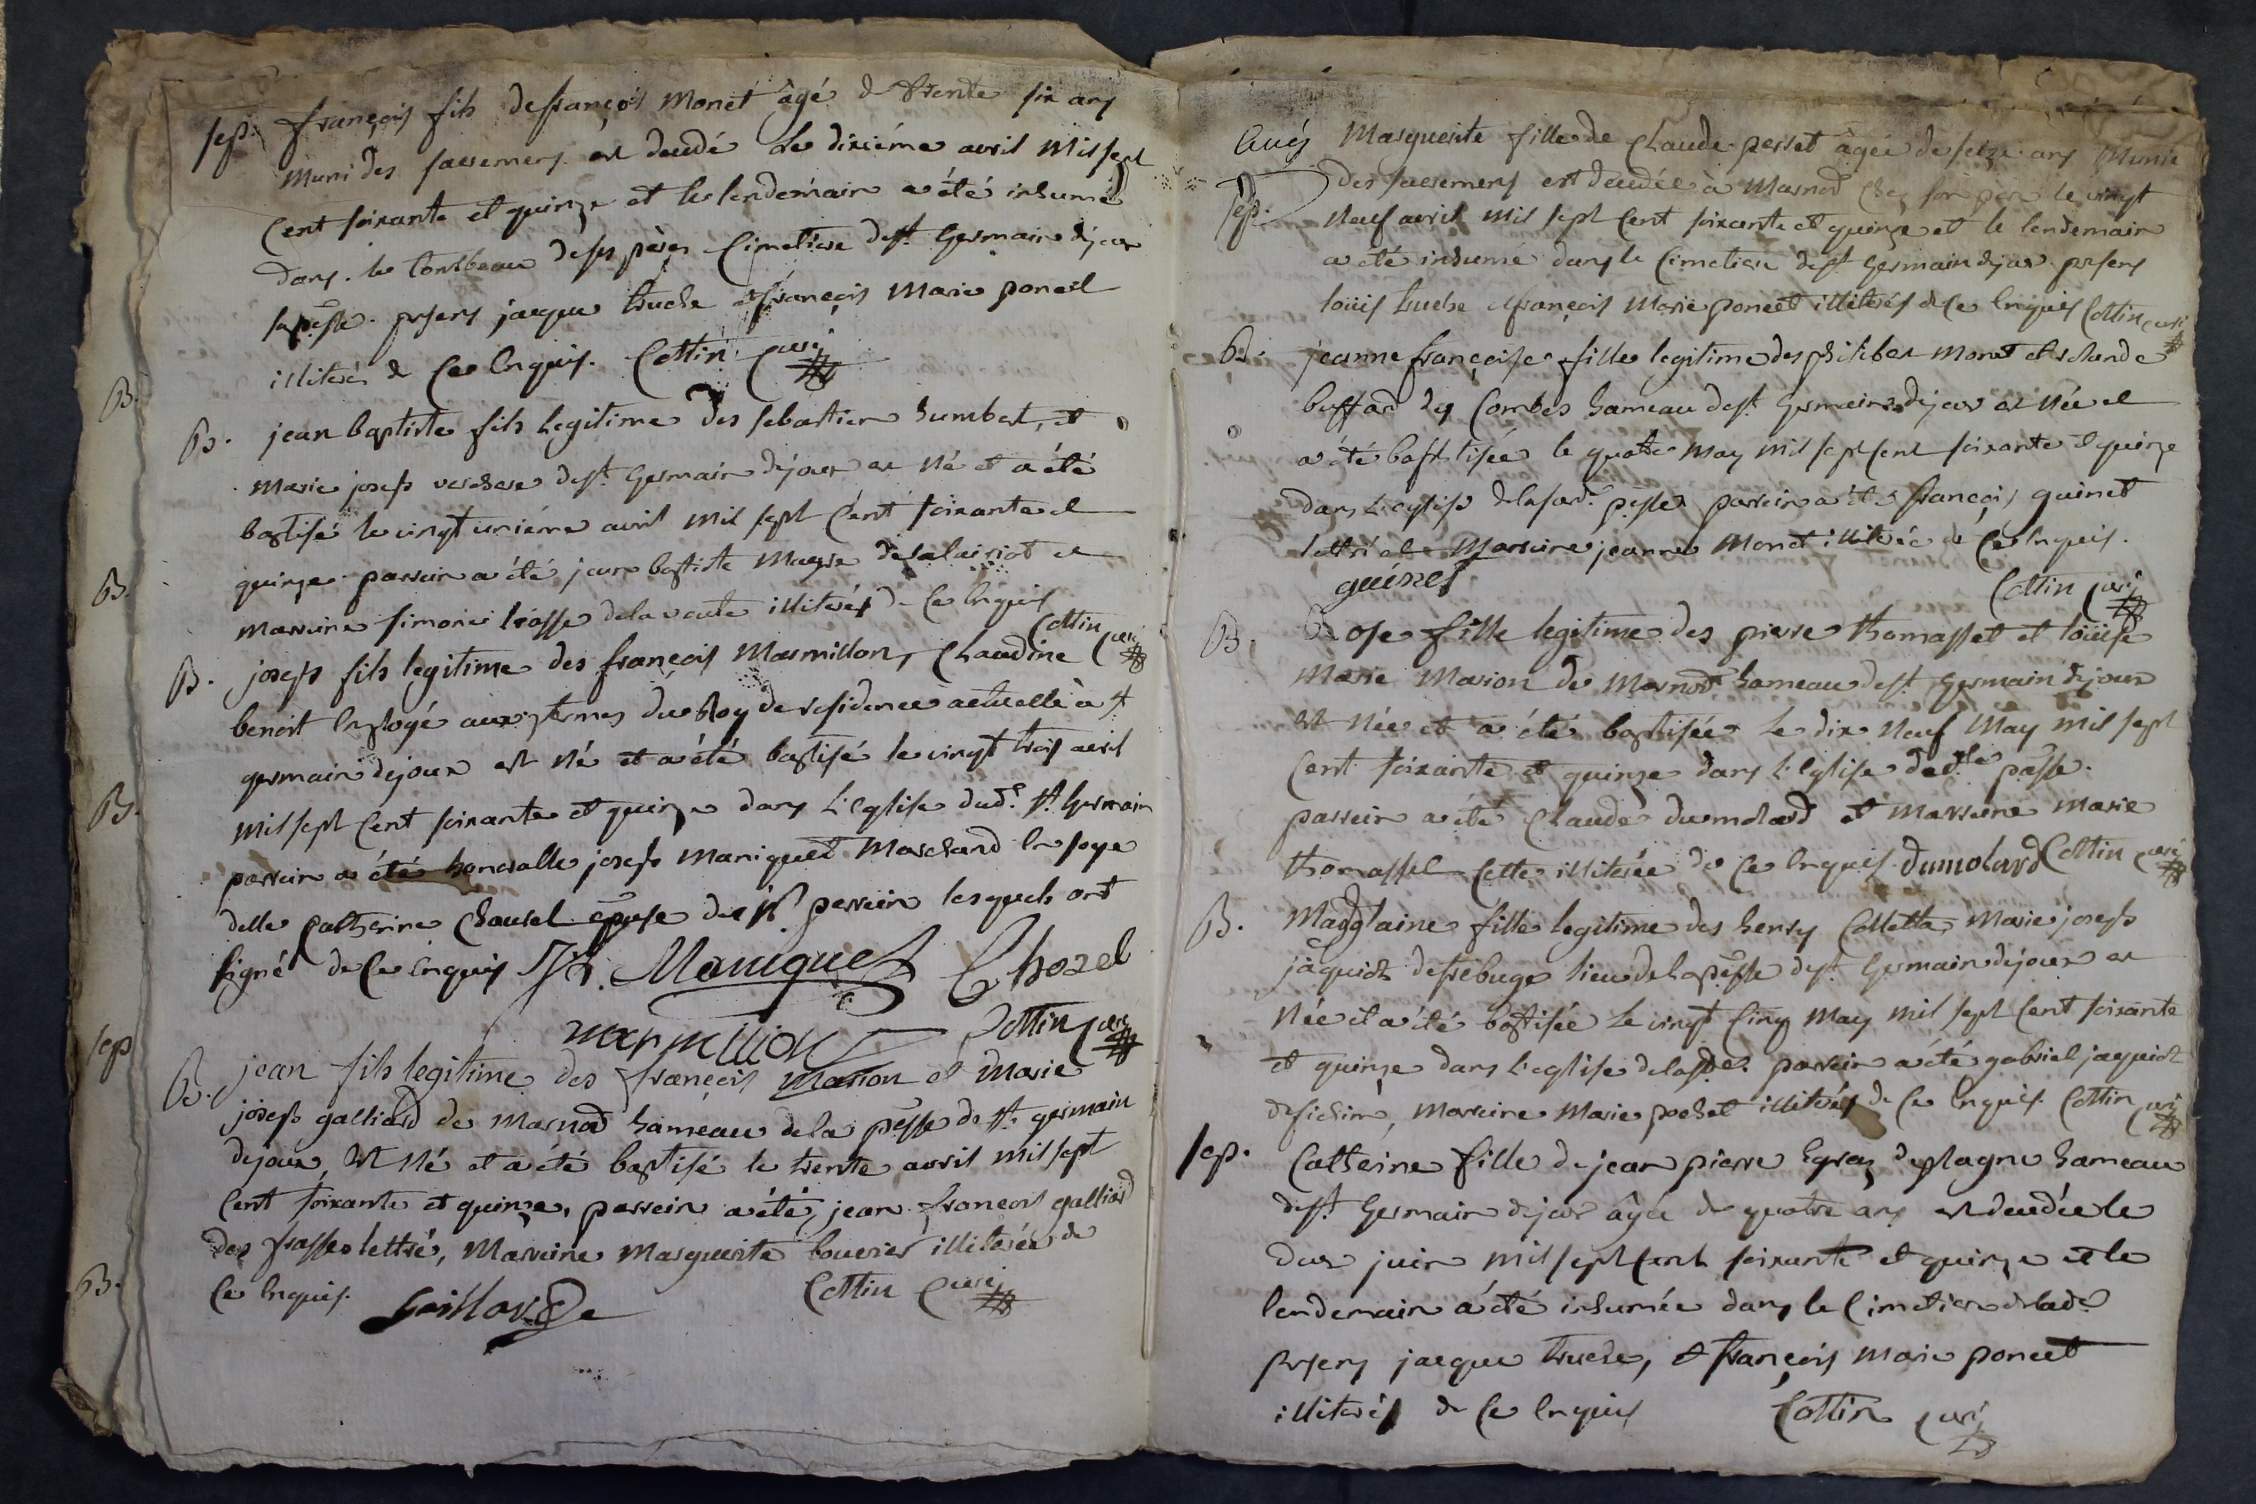 sep. françois fils de françois Monet âgé de trente six ans
muni des sacremens est decedé le dixiéme avril mil sept
Cent soixante et quinze et le lendemain a été inhumé
dans le tombeau de ses pères Cimetiere de st. Germain dejoux
sa psse. presens jacque truche et françois Marie poncet
illiterés de ce enquis. Cottin curé
B. jean baptiste fils legitime des sebastien humbert, et
Marie joseph verchere de st. Germain dejoux est né et a été
baptisé le vingt uniéme avril mil sept Cent soixante et
quinze parrein a été jean baptiste et
Marreine simone de la voute illiterés de ce enquis
Cottin curé
B. joseph fils legitime des françois Marmillon, Claudine
benoit employé aux fermes du Roy de residence actuelle à st
germain dejoux est né et a été baptisé le vingt trois avril
mil sept Cent soixante et quinze dans L'eglise dud. st. Germain
parrein a été honorable joseph Maniquet Marchand
delle Catherine Chausel épuse du sr. perrein lesquels ont
signé de ce enquis Jh. Maniquet Chozel
marmillion Cottin curé
B. jean fils legitime des françois Marion et Marie
joseph galliard de Marnod hameau de la psse de st. germain
dejoux, est né et a été baptisé le trente avril mil sept
Cent soixante et quinze, parrein a été jean françois galliard
des frasses lettré, Marreine Marguerite bouvier illiterée de
ce enquis. Cottin curé
B.
B.
B.
sep
B.
sep. Marguerite fille de Claude perret âgée de seize ans Munie
des sacremens est decedée à Marnod chez son pere le vingt
neuf avril mil sept Cent soixante et quinze et le lendemain
a été inhumé dans le Cimetiere de st. Germain dejoux presens
loüis truche et françois Marie poncet illiterés de ce enquis Cottin curé
B. jeanne françoise fille legitime des philibert Monet et
buffard des Combes hameau de st. Germain dejoux est née et
a été baptisée le quatre May mil sept Cent soixante et quinze
dans L'eglise de la sad. psse parrein a été françois guinet
lettré et Marreine jeanne Monet illiterée de ce enquis.
guinet Cottin curé
B. Rose fille legitime des pierre thomasset et loüise
Marie Marion de Marnod hameau de st. Germain dejoux
est née et a été baptisée le dix neuf May mil sept
Cent soixante et quinze dans L'Eglise de lad. psse.
parrein a été Claude dumolard et Marreine Marie
thomasset Cette illiterée de ce enquis. dumolard Cottin curé
B. Magdglaine fille legitime des henry Colletta Marie joseph
jaquioz de trébuge lieu de la psse de st. Germain dejoux est
née et a été baptisée le vingt Cinq May mil sept Cent soixante
et quinze dans L'eglise de la psse. parrein a été gabriel jaquioz
Marreine Marie pochet illiterés de ce enquis. Cottin curé
sep. Catherine fille de jean pierre Egraz de plagne hameau
de st. Germain dejoux âgée de quatre ans est decedée le
deux juin mil sept Cent soixante et quinze et le
lendemain a été inhumée dans le Cimetiere de lad.
presens jacque truche, et françois Marie poncet
illiterés de ce enquis Cottin curé